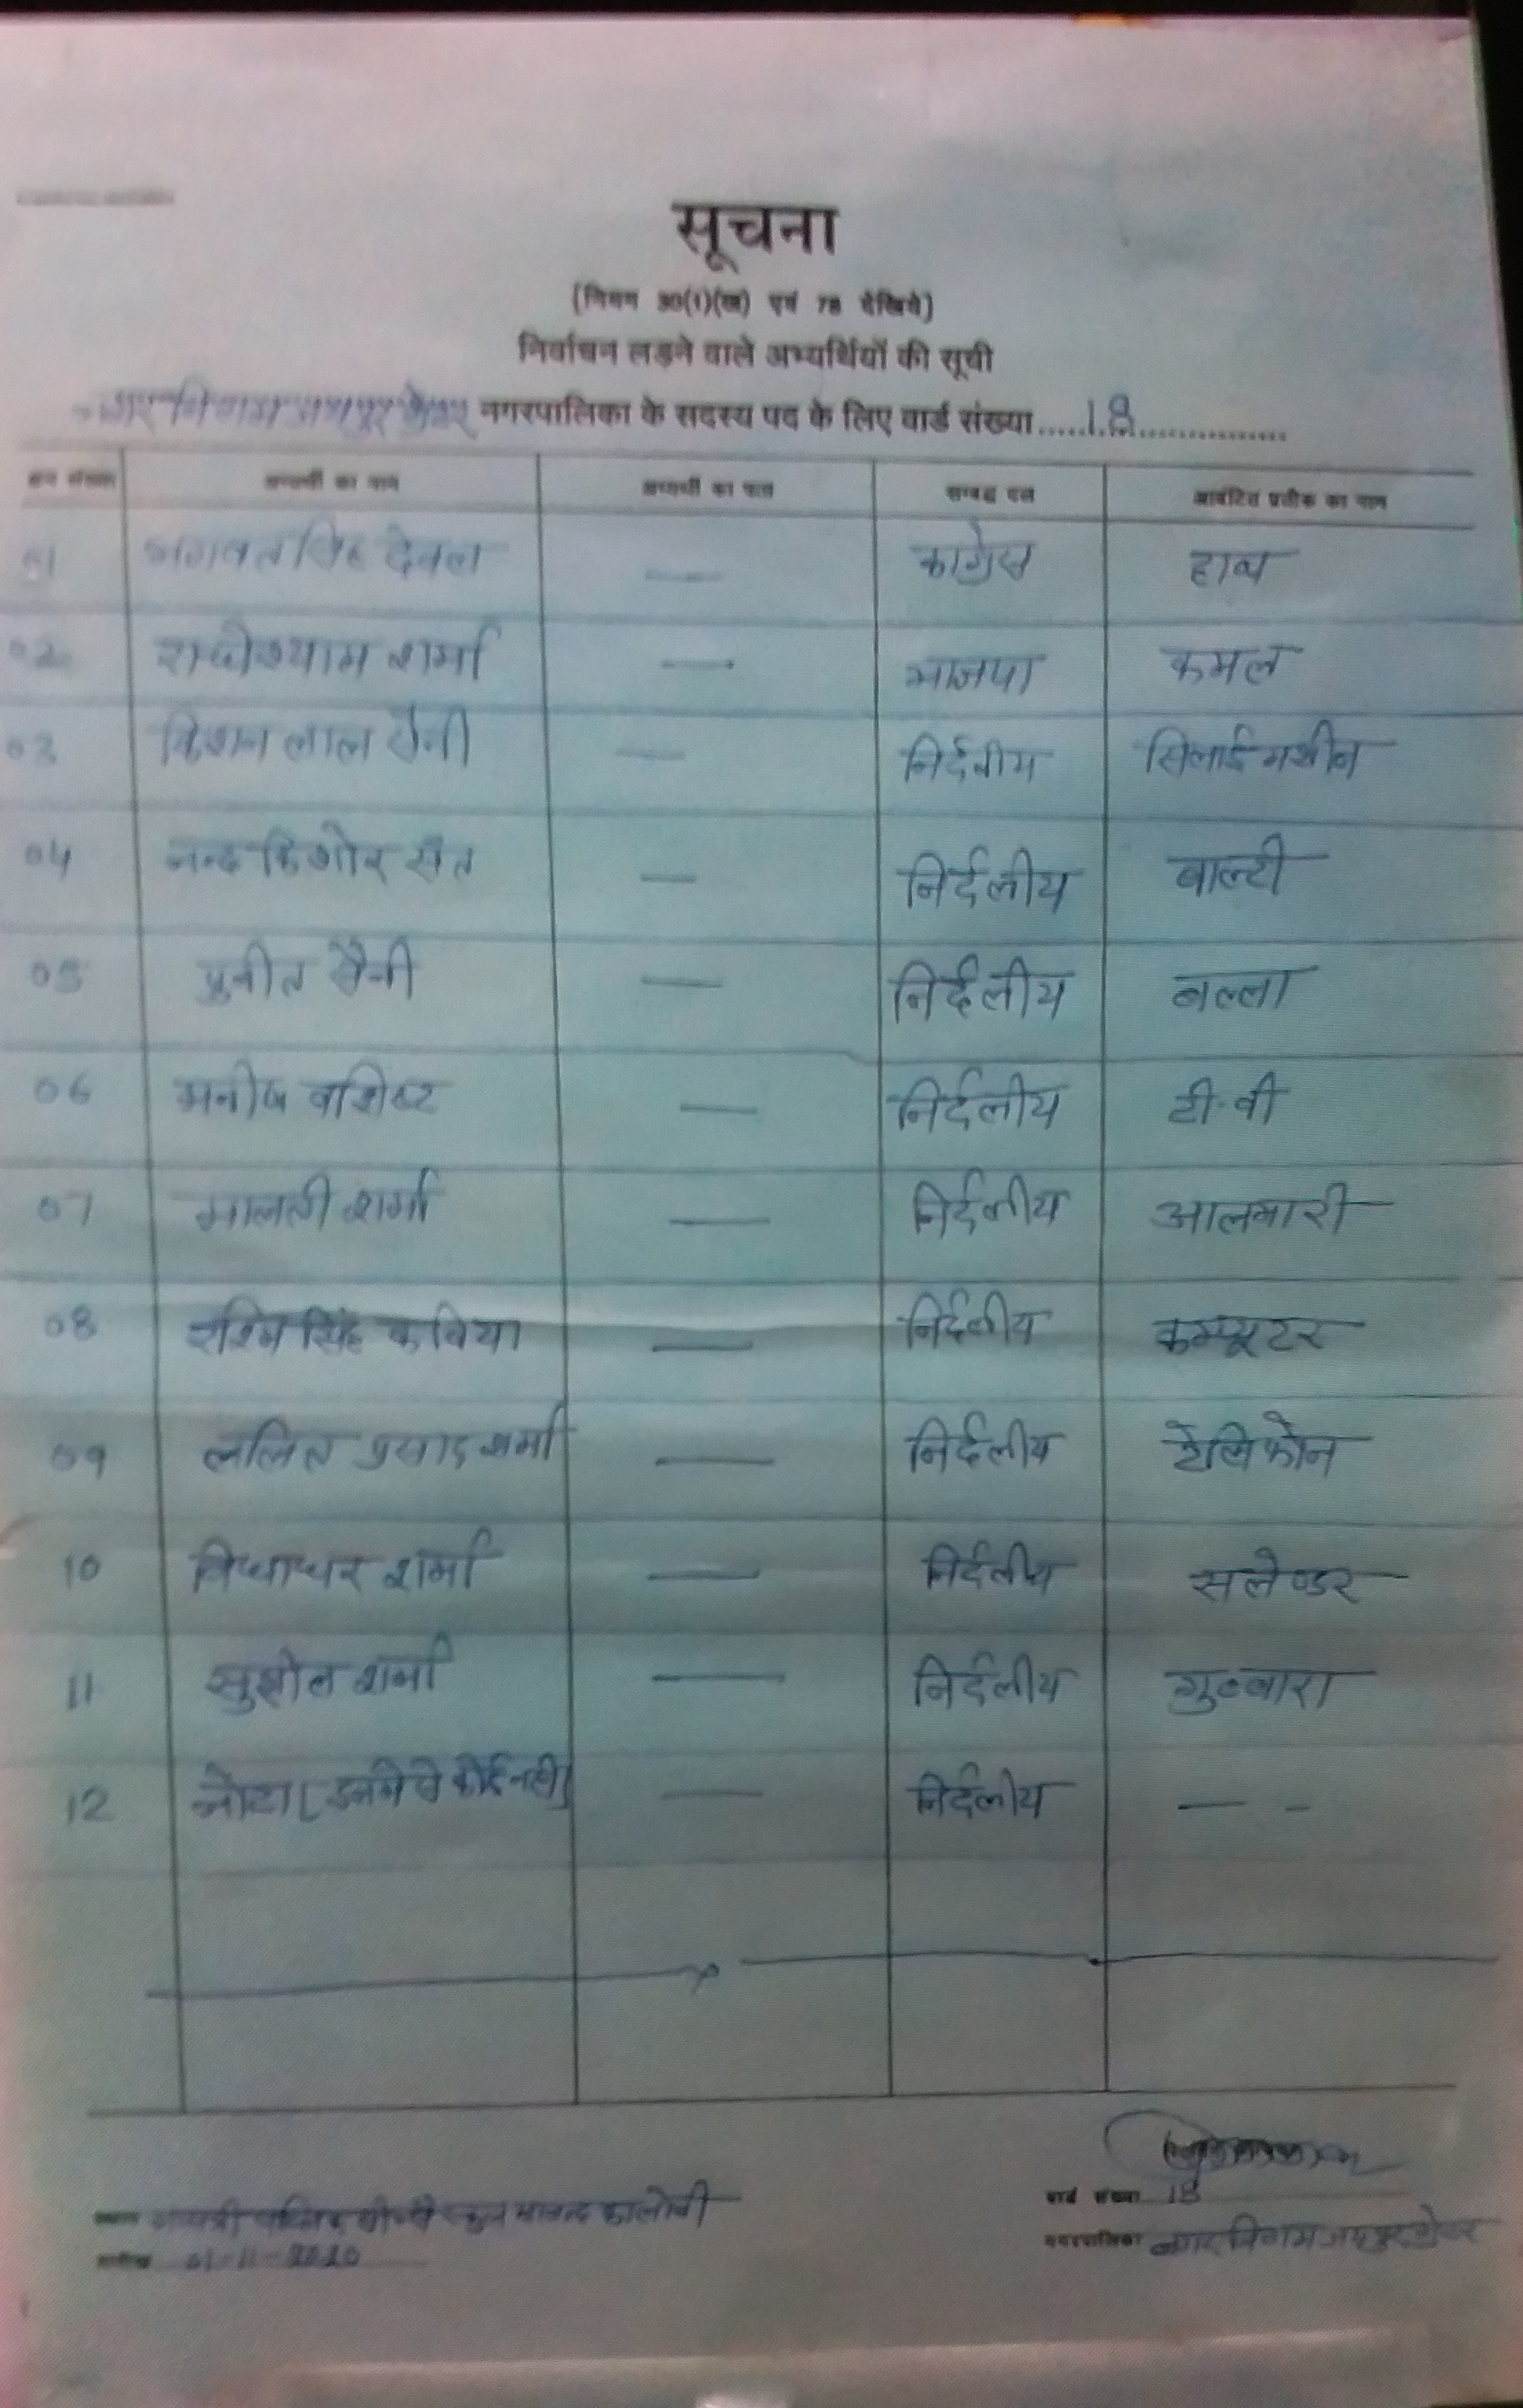 सूचना
(नियम 30(1)(ख) एवं 78 देखिये)
निर्वाचन लड़ने वाले अभ्यर्थियों की सूची
नगर निगम जयपुर ग्रेटर नगरपालिका के सदस्य पद के लिए वार्ड संख्या.....18...............
क्रम संख्या अभ्यर्थी का नाम अभ्यर्थी का पता सम्बद्ध दल आवंटित प्रतीक का नाम
01 भगवत सिंह देवल — कांग्रेस हाथ
02 राधेश्याम शर्मा — भाजपा कमल
03 किशन लाल सैनी — निर्दलीय सिलाई मशीन
04 नन्द किशोर सैन — निर्दलीय बाल्टी
05 पुनीत सैनी — निर्दलीय बल्ला
06 मनीष वशिष्ट — निर्दलीय टी.वी
07 मालती शर्मा — निर्दलीय आलमारी
08 रश्मि सिंह कविया — निर्दलीय कम्प्यूटर
09 ललित प्रसाद शर्मा — निर्दलीय टेलिफोन
10 विद्याधर शर्मा — निर्दलीय सलेण्डर
11 सुशील शर्मा — निर्दलीय गुब्बारा
12 नोटा [इनमें से कोई नही] — निर्दलीय — -
वार्ड संख्या 18
स्थान स्कुल कालोनी
नगरपालिका नगर निगम जयपुर ग्रेटर
तारीख 01-11-2020